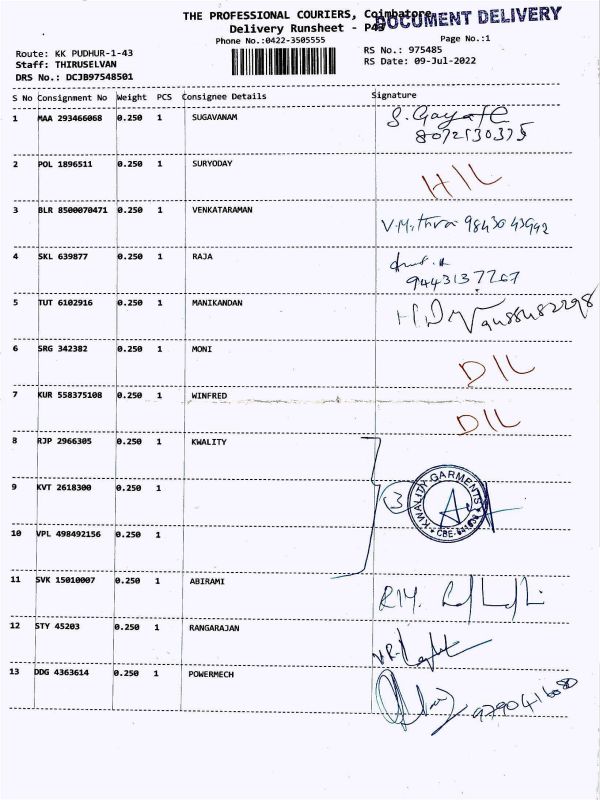 THE PROFESSIONAL COURIERS, Coimbatore
DOCUMENT DELIVERY
Delivery Runsheet - P43
Phone No.:0422-3505555
Page No.:1
Route: KK PUDHUR-1-43
RS No.: 975485
Staff: THIRUSELVAN
RS Date: 09-Jul-2022
DRS No.: DCJB97548501
S No Consignment No Weight PCS Consignee Details Signature
1 MAA 293466068 0.250 1 SUGAVANAM
8072530375
2 POL 1896511 0.250 1 SURYODAY H/L
3 BLR 8500070471 0.250 1 VENKATARAMAN V.Mithra 9843043992
4 SKL 639877 0.250 1 RAJA
9443137267
5 TUT 6102916 0.250 1 MANIKANDAN
6 SRG 342382 0.250 1 MONI D/L
7 KUR 558375108 0.250 1 WINFRED D/L
8 RJP 2966305 0.250 1 KWALITY
9 KVT 2618300 0.250 1 3 KWALITY GARMENTS
10 VPL 498492156 0.250 1
11 SVK 15010007 0.250 1 ABIRAMI
12 STY 45203 0.250 1 RANGARAJAN
13 DDG 4363614 0.250 1 POWERMECH